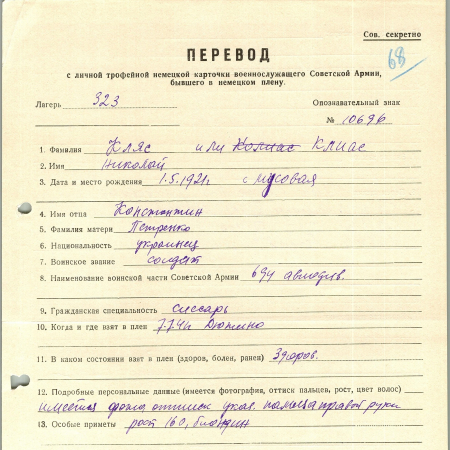 Сов. секретно
68
ПЕРЕВОД
с личной трофейной немецкой карточки военнослужащего Советской Армии,
бывшего в немецком плену.
Лагерь 323 Опознавательный знак
№ 10696
1. Фамилия Кляс или Колиас Клиас
2. Имя Николай
3. Дата и место рождения 1.5.1921г с Мусовая
4. Имя отца Константин
5. Фамилия матери Петренко
6. Национальность украинец
7. Воинское звание солдат
8. Наименование воинской части Советской Армии 694
9. Гражданская специальность слесарь
10. Когда и где взят в плен 7.7.41
11. В каком состоянии взят в плен (здоров, болен, ранен) Здоров.
12. Подробные персональные данные (имеется фотография, оттиск пальцев, рост, цвет волос)
имеется фото, оттиск указ. пальца правой руки
13. Особые приметы рост 160, блондин